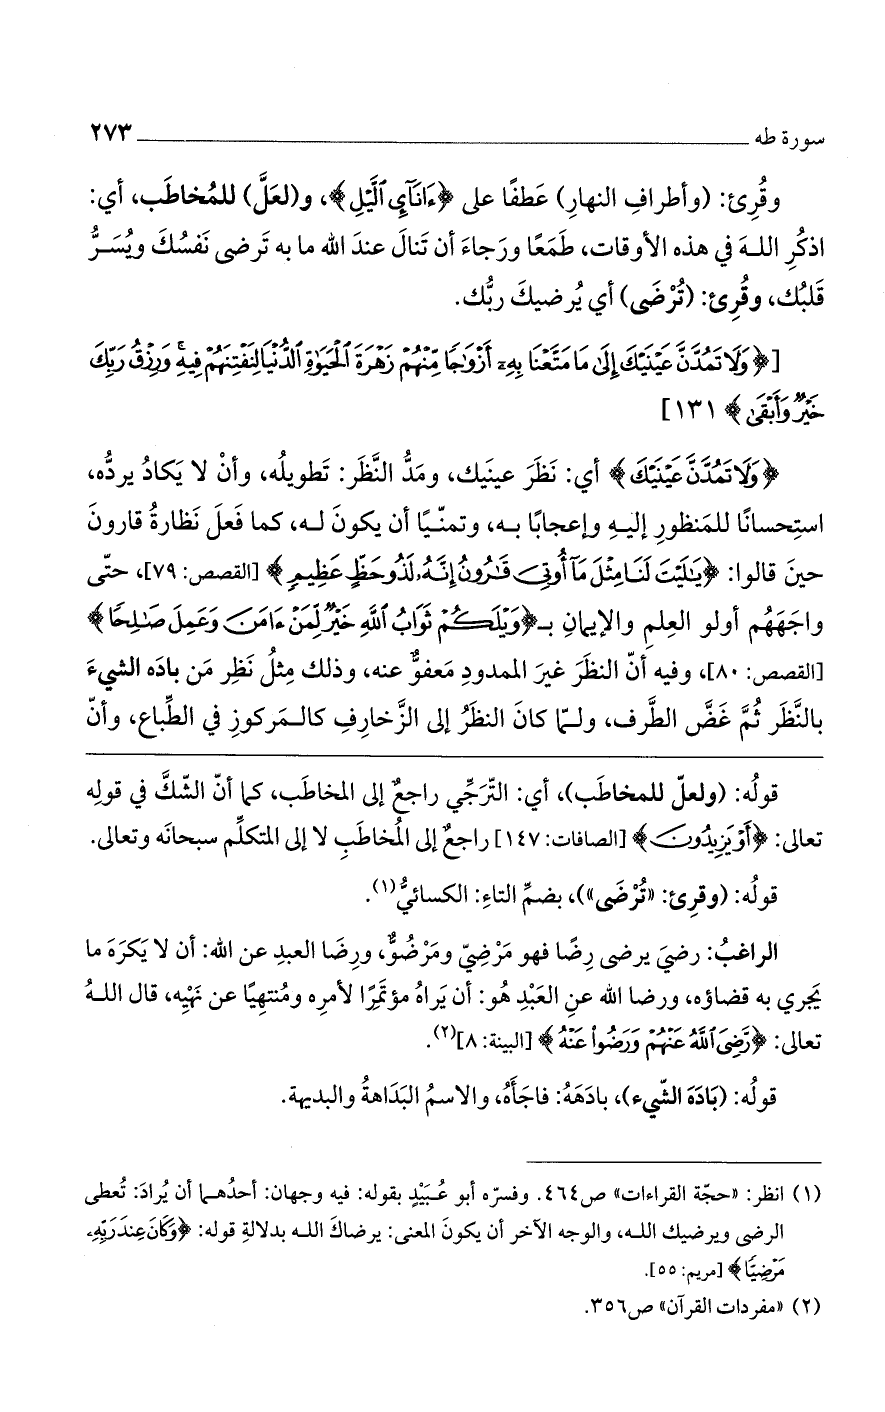 سورة طه ٢٧٣
وقُرِئ: (وأطرافِ النهارِ) عَطفًا على ﴿ءَانَآيِٕ ٱلَّيْلِ﴾، و(لعَلَّ) للمُخاطَب، أي:
اذكُرِ اللـهَ في هذه الأوقات، طَمَعًا ورَجاءَ أن تَنالَ عندَ الله ما به تَرضى نَفسُكَ ويُسَـرُّ
قَلبُك، وقُرِئ: (تُرْضَى) أي يُرضيكَ ربُّك.
[﴿وَلَا تَمُدَّنَّ عَيْنَيْكَ إِلَىٰ مَا مَتَّعْنَا بِهِۦٓ أَزْوَٰجًا مِّنْهُمْ زَهْرَةَ ٱلْحَيَوٰةِ ٱلدُّنْيَا لِنَفْتِنَهُمْ فِيهِ ۚ وَرِزْقُ رَبِّكَ
خَيْرٌ وَأَبْقَىٰ﴾ ١٣١]
﴿وَلَا تَمُدَّنَّ عَيْنَيْكَ﴾ أي: نَظَرَ عينَيك، ومَدُّ النَّظَر: تَطويلُه، وأنْ لا يَكادُ يردُّه،
استِحسانًا للمَنظورِ إليـهِ وإعجابًا بـه، وتمنّـيًا أن يكونَ لـه، كما فَعلَ نَظارةُ قارونَ
حينَ قالوا: ﴿يَٰلَيْتَ لَنَا مِثْلَ مَآ أُوتِىَ قَٰرُونُ إِنَّهُۥ لَذُو حَظٍّ عَظِيمٍ﴾ [القصص: ٧٩]، حتّى
واجَهَهُم أولو العِلمِ والإيمانِ بـ﴿وَيْلَكُمْ ثَوَابُ ٱللَّهِ خَيْرٌ لِّمَنْ ءَامَنَ وَعَمِلَ صَٰلِحًا﴾
[القصص: ٨٠]، وفيه أنّ النظَرَ غيرَ الممدودِ مَعفوٌّ عنه، وذلك مِثلُ نَظرِ مَن بادَه الشيءَ
بالنَّظَر ثُمَّ غَضَّ الطَّرف، ولـمّا كانَ النظَرُ إلى الزَّخارِفِ كالـمَركوزِ في الطِّباع، وأنّ
قولُه: (ولعلّ للمخاطَب)، أي: التّرَجِّي راجعٌ إلى المخاطَب، كما أنّ الشّكَّ في قولِه
تعالى: ﴿أَوْ يَزِيدُونَ﴾ [الصافات: ١٤٧] راجعٌ إلى المُخاطَبِ لا إلى المتكلِّم سبحانَه وتعالى.
قولُه: (وقرِئ: «تُرْضَى»)، بضمِّ التاءِ: الكسائيُّ(١).
الراغبُ: رضيَ يرضى رِضًا فهو مَرْضِيّ ومَرْضُوٌّ، ورِضَا العبدِ عن الله: أن لا يَكرَهَ ما
يَجري به قضاؤه، ورضا الله عنِ العَبْدِ هُو: أن يَراهُ مؤتَمِرًا لأمرِه ومُنتهِيًا عن نَهْيِه، قال اللـهُ
تعالى: ﴿رَّضِىَ ٱللَّهُ عَنْهُمْ وَرَضُوا۟ عَنْهُ﴾ [البينة: ٨](٢).
قولُه: (بَادَهَ الشّيء)، بادَهَهُ: فاجَأَهُ، والاسمُ البَدَاهةُ والبديهة.
(١) انظر: «حجّة القراءات» ص٤٦٤. وفسّره أبو عُـبَيْدٍ بقوله: فيه وجهان: أحدُهـما أن يُرادَ: تُعطى
الرضى ويرضيك اللـه، والوجه الآخر أن يكونَ المعنى: يرضاكَ اللـه بدلالةِ قوله: ﴿وَكَانَ عِندَ رَبِّهِۦ
مَرْضِيًّا﴾ [مريم: ٥٥].
(٢) «مفردات القرآن» ص٣٥٦.